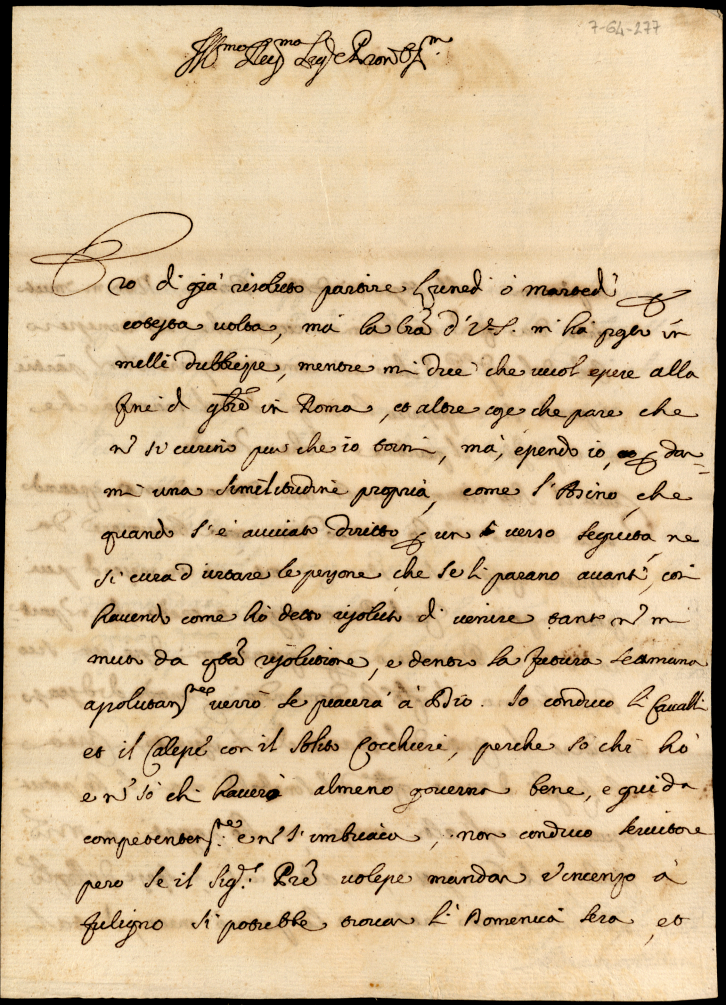 7-64-277
Ill.mo Sig.r e Pron Col.mo
Ero di già risoluto partire Lunedì ò martedì p
cotesta volta, mà la lrã d'V.S. mi hà posto in
mille dubbiezze, mentre mi dice che vuol essere alla
fine di 9bre in Roma, et altre cose che pare che
nõ si curino più che io torni, mà, essendo io, p dar-
mi una similitudine propria, come l'Asino, che
quando s'è avviato diritto p un verso seguita ne
si cura d'urtare le persone che se li parano avanti, così
havendo come hò detto risoluto di venire tanto nõ mi
muto da qstã risolutione, e dentro la futura settimana
assolutamte verrò se piacerà à Dio. Io conduco li Cavalli
et il Calesse con il solito Cocchiere, perche sò chi hò
e nõ sò chi haverò almeno governa bene, e guida
competentemte e nõ s'imbriaca, non conduco servitore
però se il Sig.r Prẽ volesse mandar Vincenzo à
fuligno si potrebbe trovar lì Domenica sera, et